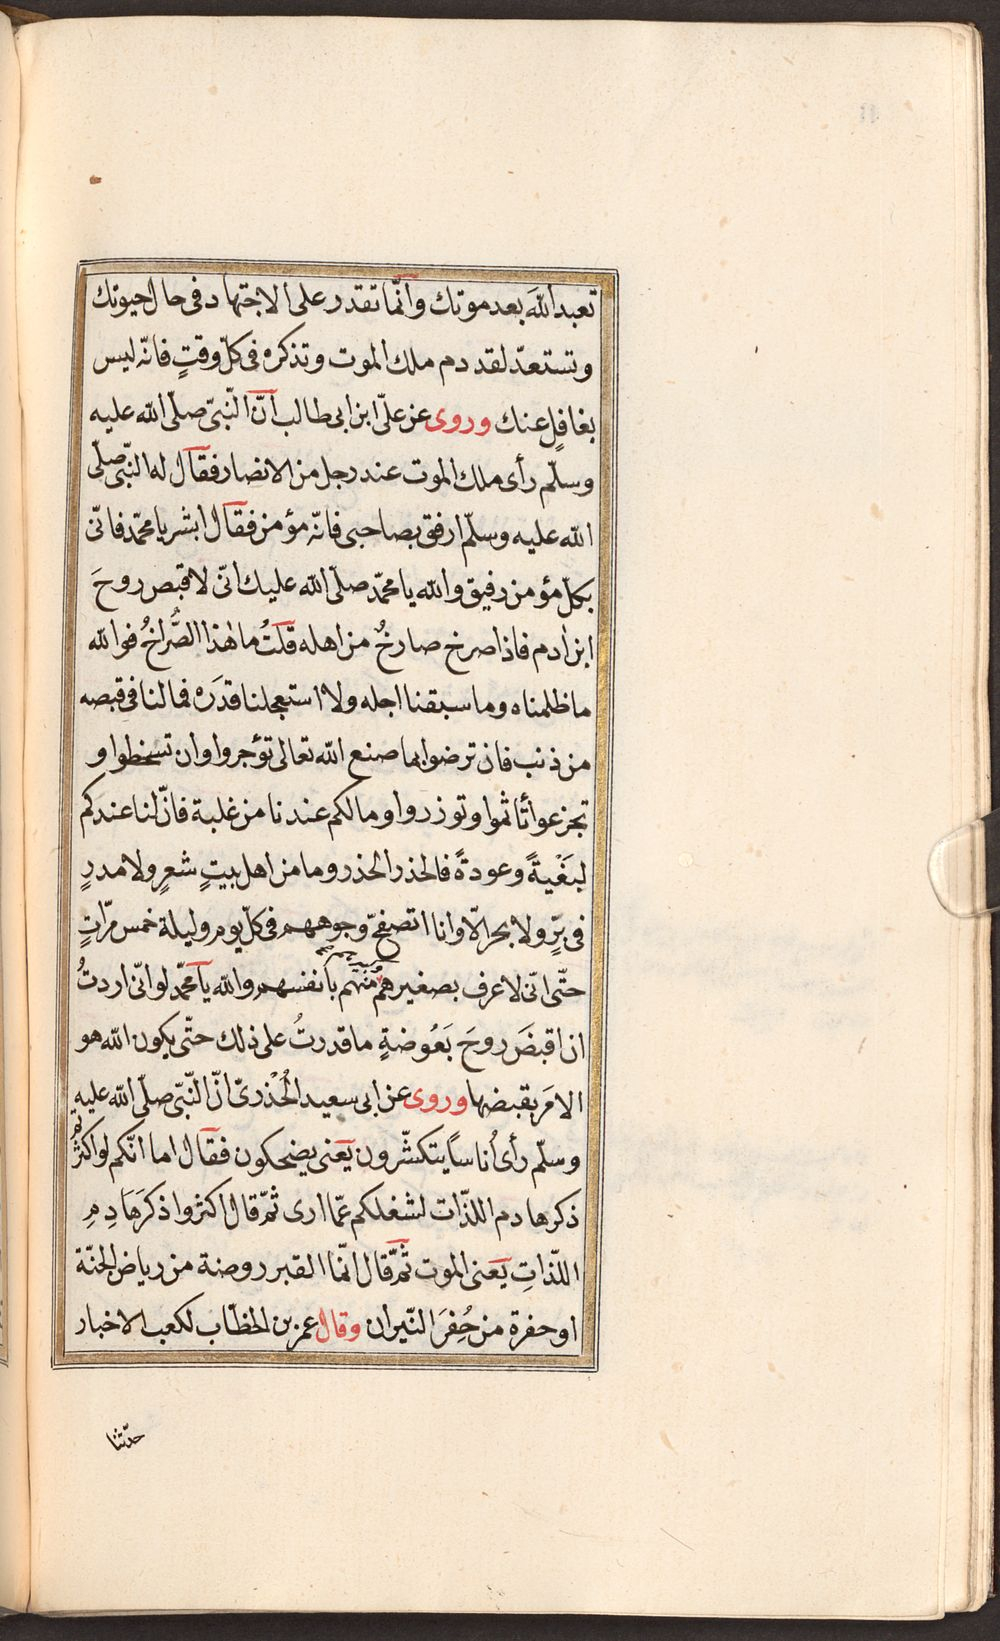 تعبد اللّه بعد موتك وانّما تقدر على الاجتهاد فى حال حيوتك
وتستعدّ لقدوم ملك الموت وتذكره فى كلّ وقتٍ فانّه ليس
بغافلٍ عنك وروى عن علىّ ابن ابى طالب انّ النّبىّ صلّى اللّه عليه
وسلّم رأى ملك الموت عند رجل من الانصار فقال له النّبىّ صلّى
اللّه عليه وسلّم ارفق بصاحبى فانّه مؤمن فقال ابشر يا محمّد فانّى
بكلّ مؤمن رفيق واللّه يا محمّد صلّى اللّه عليك انّى لاقبض روحَ
ابن ادم فاذا صرخ صارخٌ من اهله قلتُ ما هٰذا الصُّراخُ فواللّه
ما ظلمناه وما سبقنا اجله ولا استعجلنا قدَره فما لنا فى قبضه
من ذنب فان ترضوا بما صنع اللّه تعالى تؤجروا وان تسخطوا و
تجزعوا تأثموا وتوزروا وما لكم عندنا من غلبة فانّ لنا عندكم
لبَغْيةً وعودةً فالحذر الحذر وما من اهل بيتٍ شعرٍ ولا مدرٍ
فى برٍّ ولا بحر الّا وانا اتصفّح وجوههم فى كلّ يوم وليلة خمس مرّاتٍ
حتّى انّى لاعرف بصغيرهم منهم بأنفسهم واللّه يا محمّد لو انّى اردتُ
ان اقبضَ روحَ بَعُوضةٍ ما قدرتُ على ذلك حتّى يكون اللّه هو
الامَر بقبضها وروى عن ابى سعيد الخُذرىّ انّ النّبىّ صلّى اللّه عليه
وسلّم رأى أناساً يتكشّرون يعنى يضحكون فقال اما انّكم لو اكثرتم
ذكر هادم اللذّات لشغلكم عمّا ارى ثمّ قال اكثروا ذكرَ هَادِمِ
اللّذاتِ يعنى الموت ثمّ قال انّما القبر روضة من رياض الجنّة
او حفرة من حُفَرَ النّيران وقال عمر بن الخطّاب لكعب الاخبار
حدّثنا